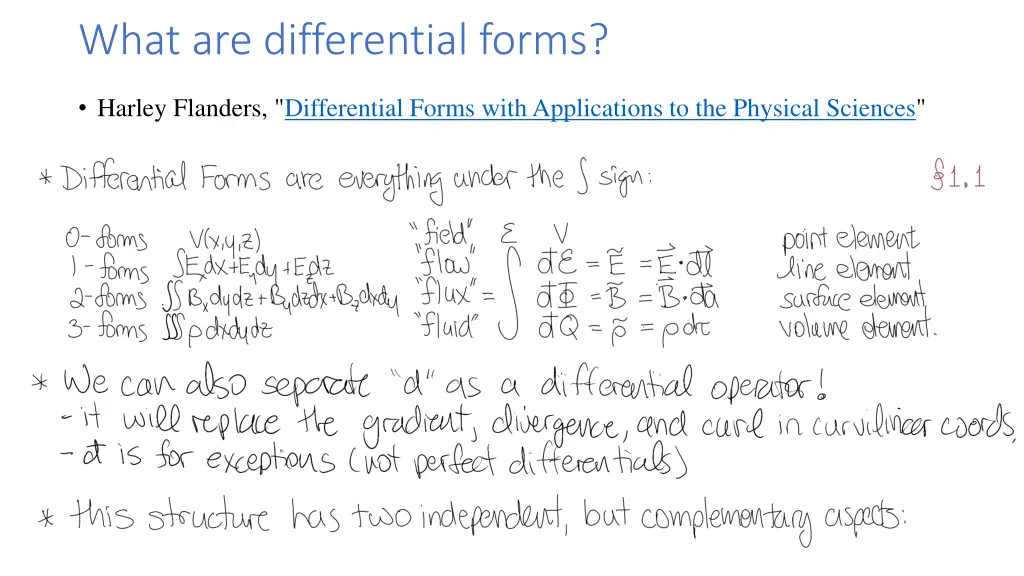 What are differential forms?
• Harley Flanders, "Differential Forms with Applications to the Physical Sciences"
* Differential Forms are everything under the ∫ sign: §1.1
0-forms V(x,y,z) "field" ℰ V point element
1-forms ∫Eₓdx+E_ydy+E_zdz "flow" đℰ = Ẽ = E⃗·đl⃗ line element
2-forms ∬Bₓdydz+B_ydzdx+B_zdxdy "flux" = ∫ đΦ = B̃ = B⃗·đa⃗ surface element,
3-forms ∭ρdxdydz "fluid" đQ = ρ̃ = ρdτ volume element.
* We can also separate "d" as a differential operator!
- it will replace the gradient, divergence, and curl in curvilinear coords,
- đ is for exceptions (not perfect differentials)
* this structure has two independent, but complementary aspects: